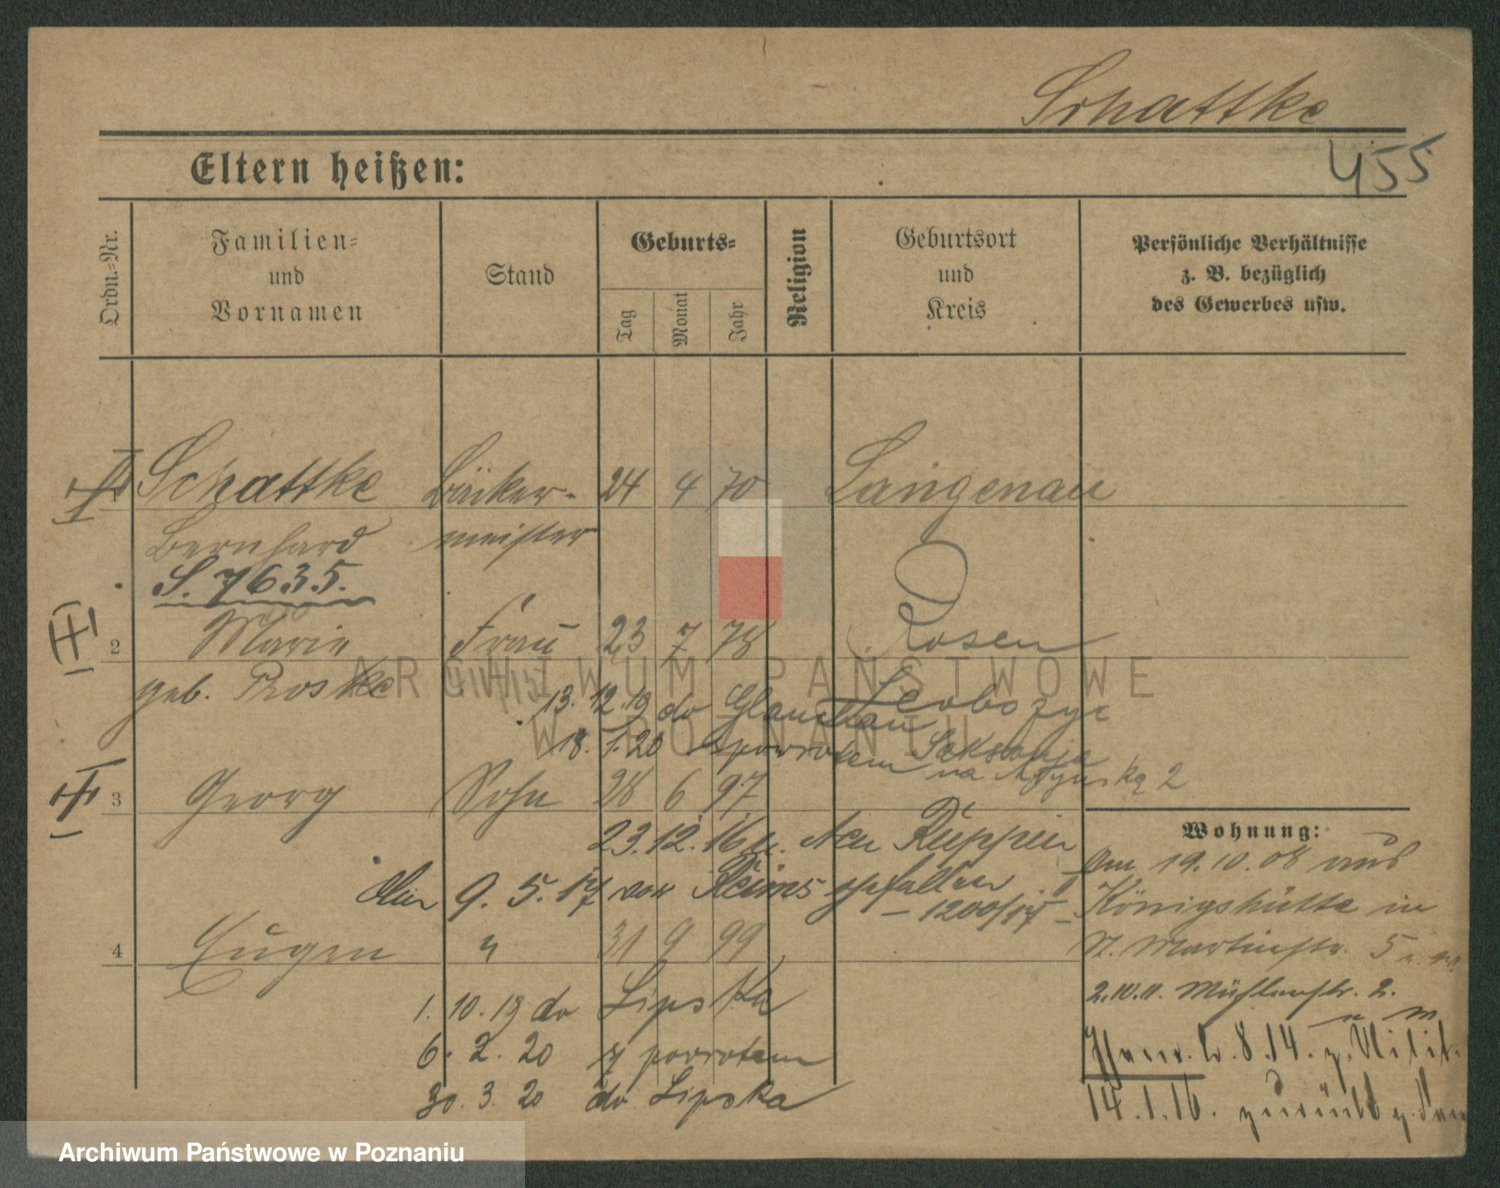 Schattke
455
Eltern heißen:
Ordn.-Nr.
Familien-
und
Vornamen
Stand
Geburts-
Tag
Monat
Jahr
Religion
Geburtsort
und
Kreis
Persönliche Verhältnisse
z. B. bezüglich
des Gewerbes usw.
1 Schattke Bäcker- 24 4 70 Langenau
Bernhard meister
S. 7635.
2 Marie Frau 23 7 78 Posen
geb. Roske
13. 12. 19 do Glauchau
18. 1. 20 z powrotem Saksonja
2
3 Georg Sohn 28 6 97
23. 12. 16 n. Neu Ruppin
Am 9. 5. 17 vor Reims gefallen
- 1200/17 -
4 Eugen " 31 9 99
1. 10. 19 do Lipska
6. 2. 20 z powrotem
30. 3. 20 do Lipska
Wohnung:
Am 19.10.08 aus
Königshütte in
St. Martinstr. 5
2.10.11. Mühlenstr. 2.
8.14. z. Milit.
14.1.16. zurück
ARCHIWUM PAŃSTWOWE
W POZNANIU
Archiwum Państwowe w Poznaniu